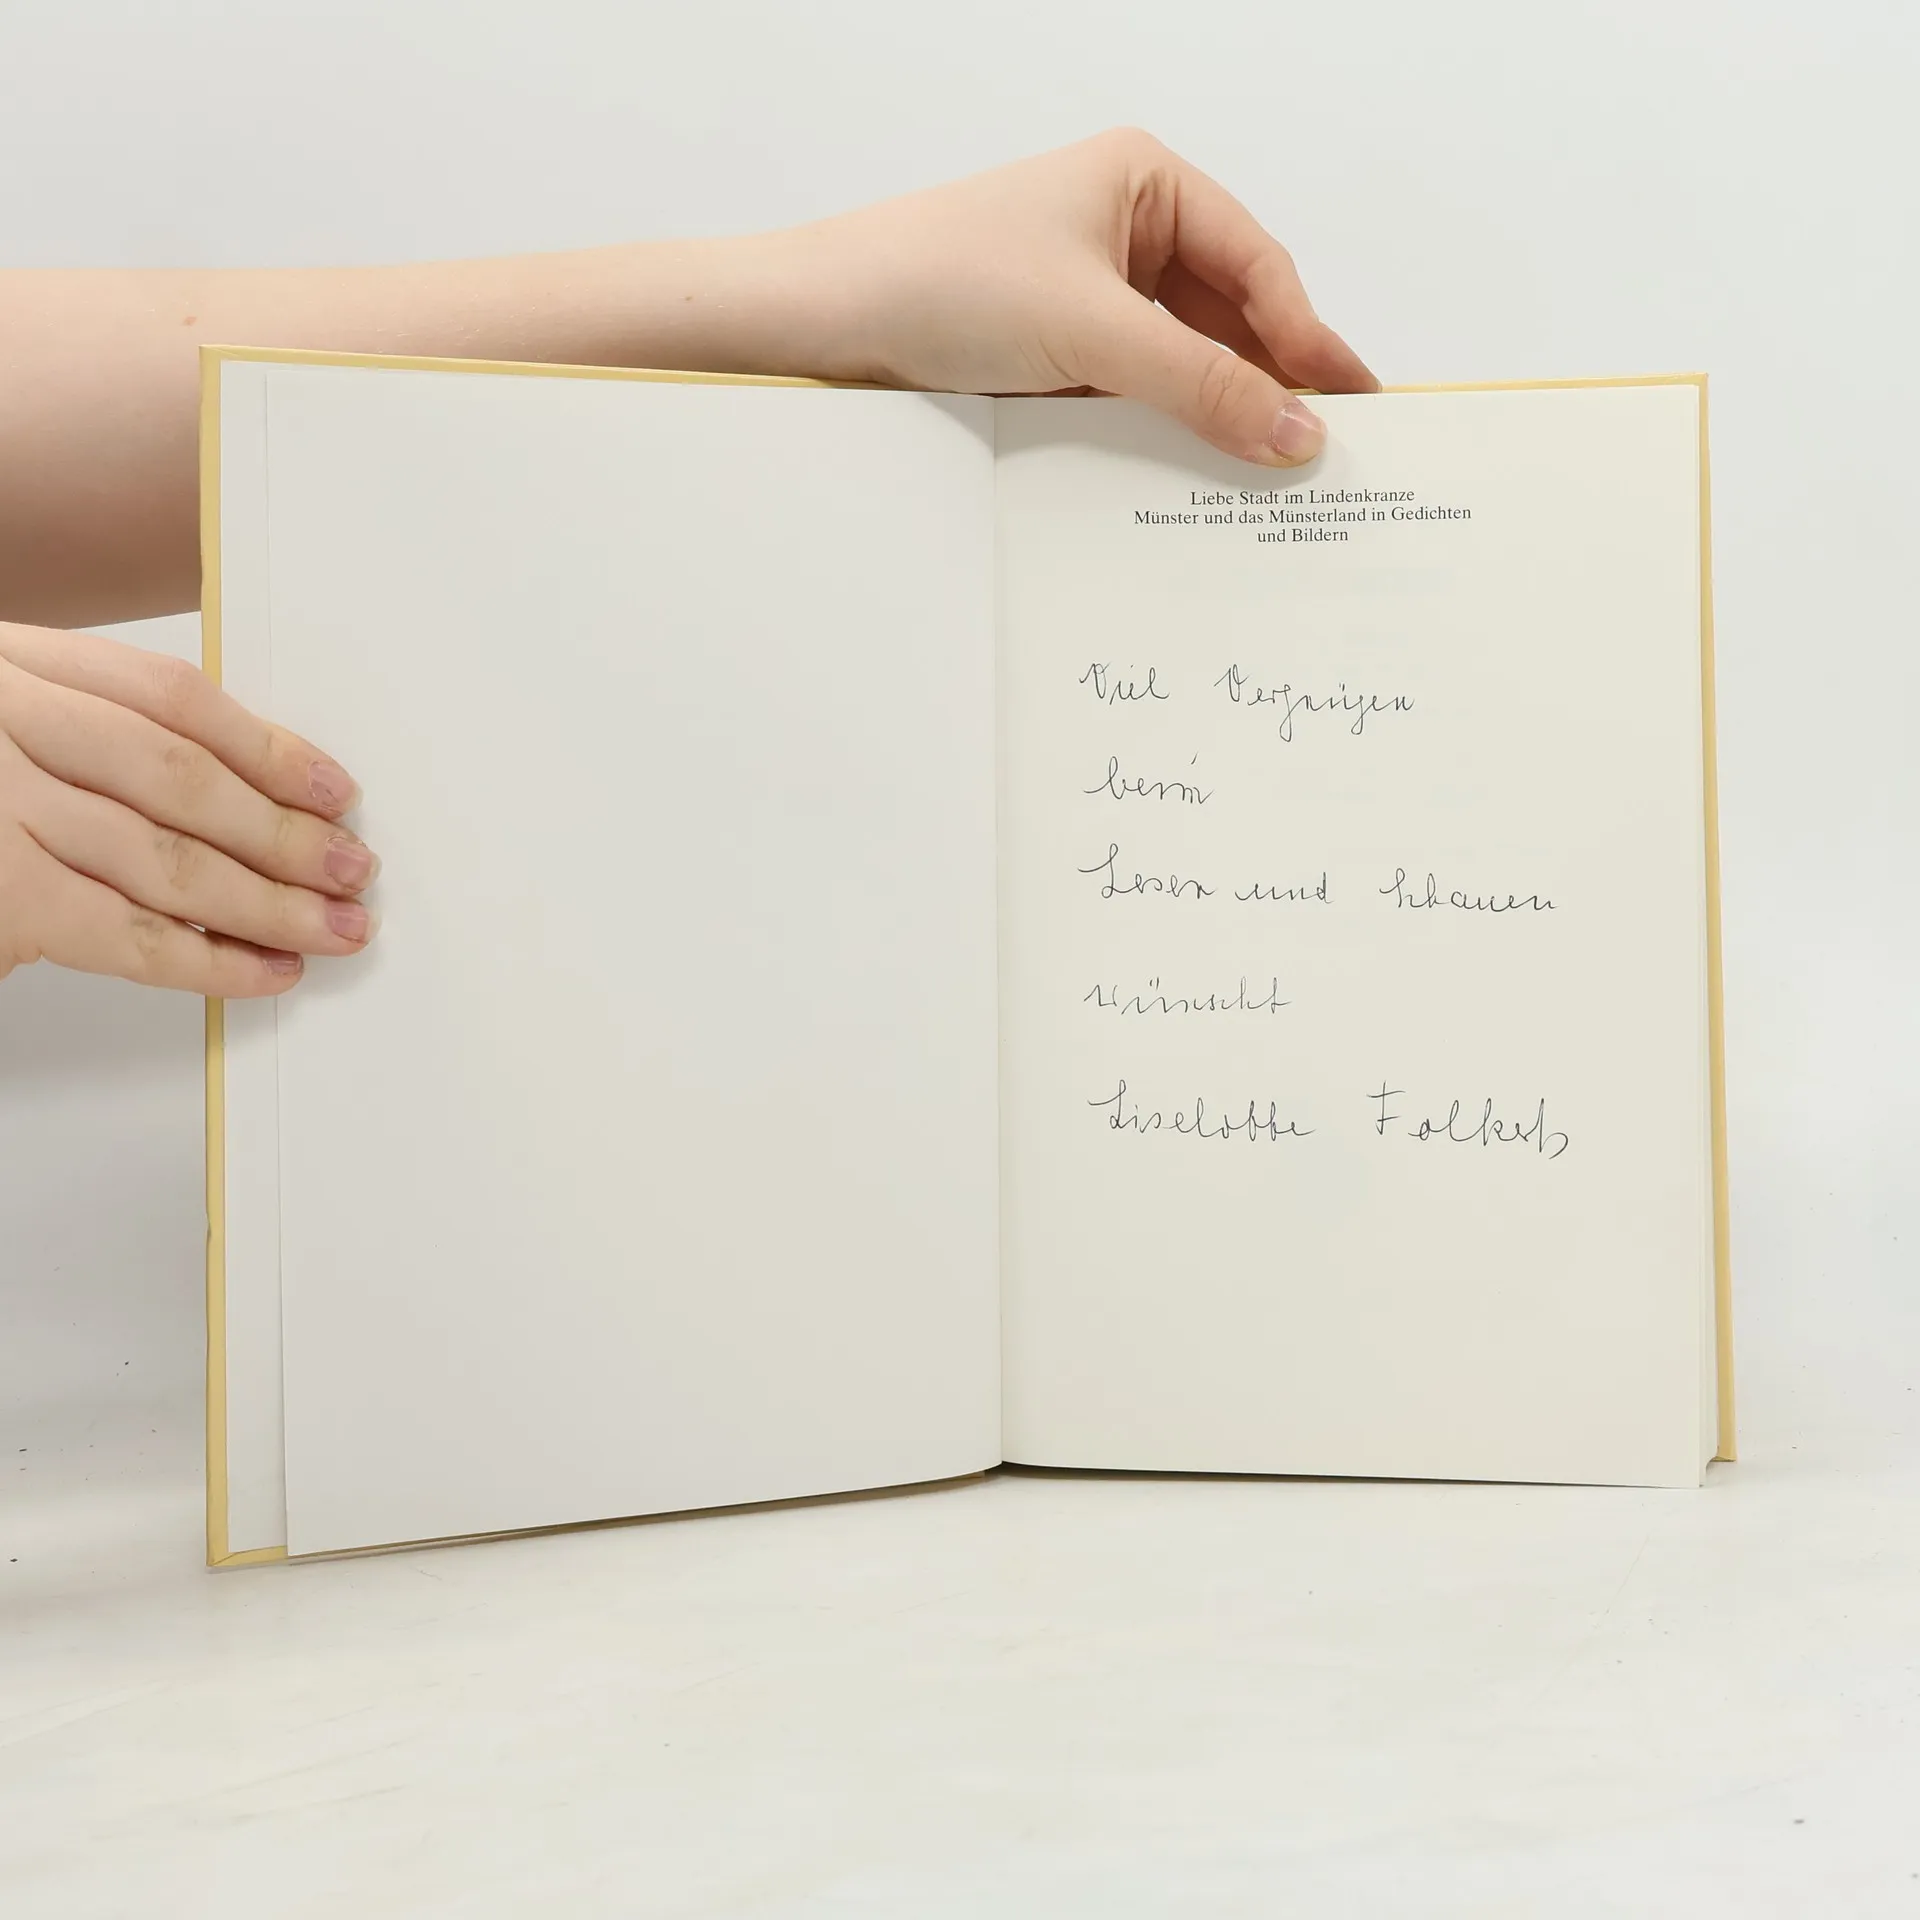 Liebe Stadt im Lindenkranze
Münster und das Münsterland in Gedichten
und Bildern
Viel Vergnügen
beim
Lesen und Schauen
wünscht
Liselotte Folkerts